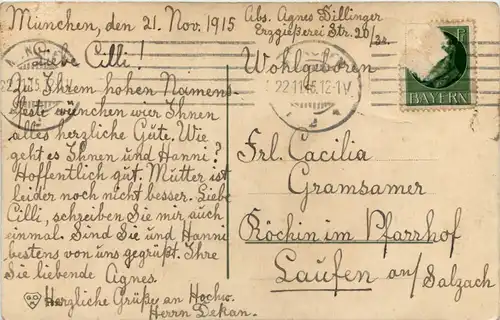 München, den 21. Nov. 1915
Liebe Cilli!
Zu Ihrem hohen Namens-
feste wünchen wier Ihnen
alles herzliche Gute. Wie
geht es Ihnen und Hanni?
Hoffentlich gut. Mutter ist
leider noch nicht besser. Liebe
Cilli, schreiben Sie mir auch
einmal. Sind Sie und Hanni
bestens von uns gegrüßt. Ihre
Sie liebende Agnes.
Herzliche Grüße an Hochw.
Herrn Dekan.
Abs. Agnes Dillinger
Erzgießerei Str. 20/
Wohlgeboren
Frl. Cacilia
Gramsamer
Köchin im Pfarrhof
Laufen an/Salzach
BAYERN